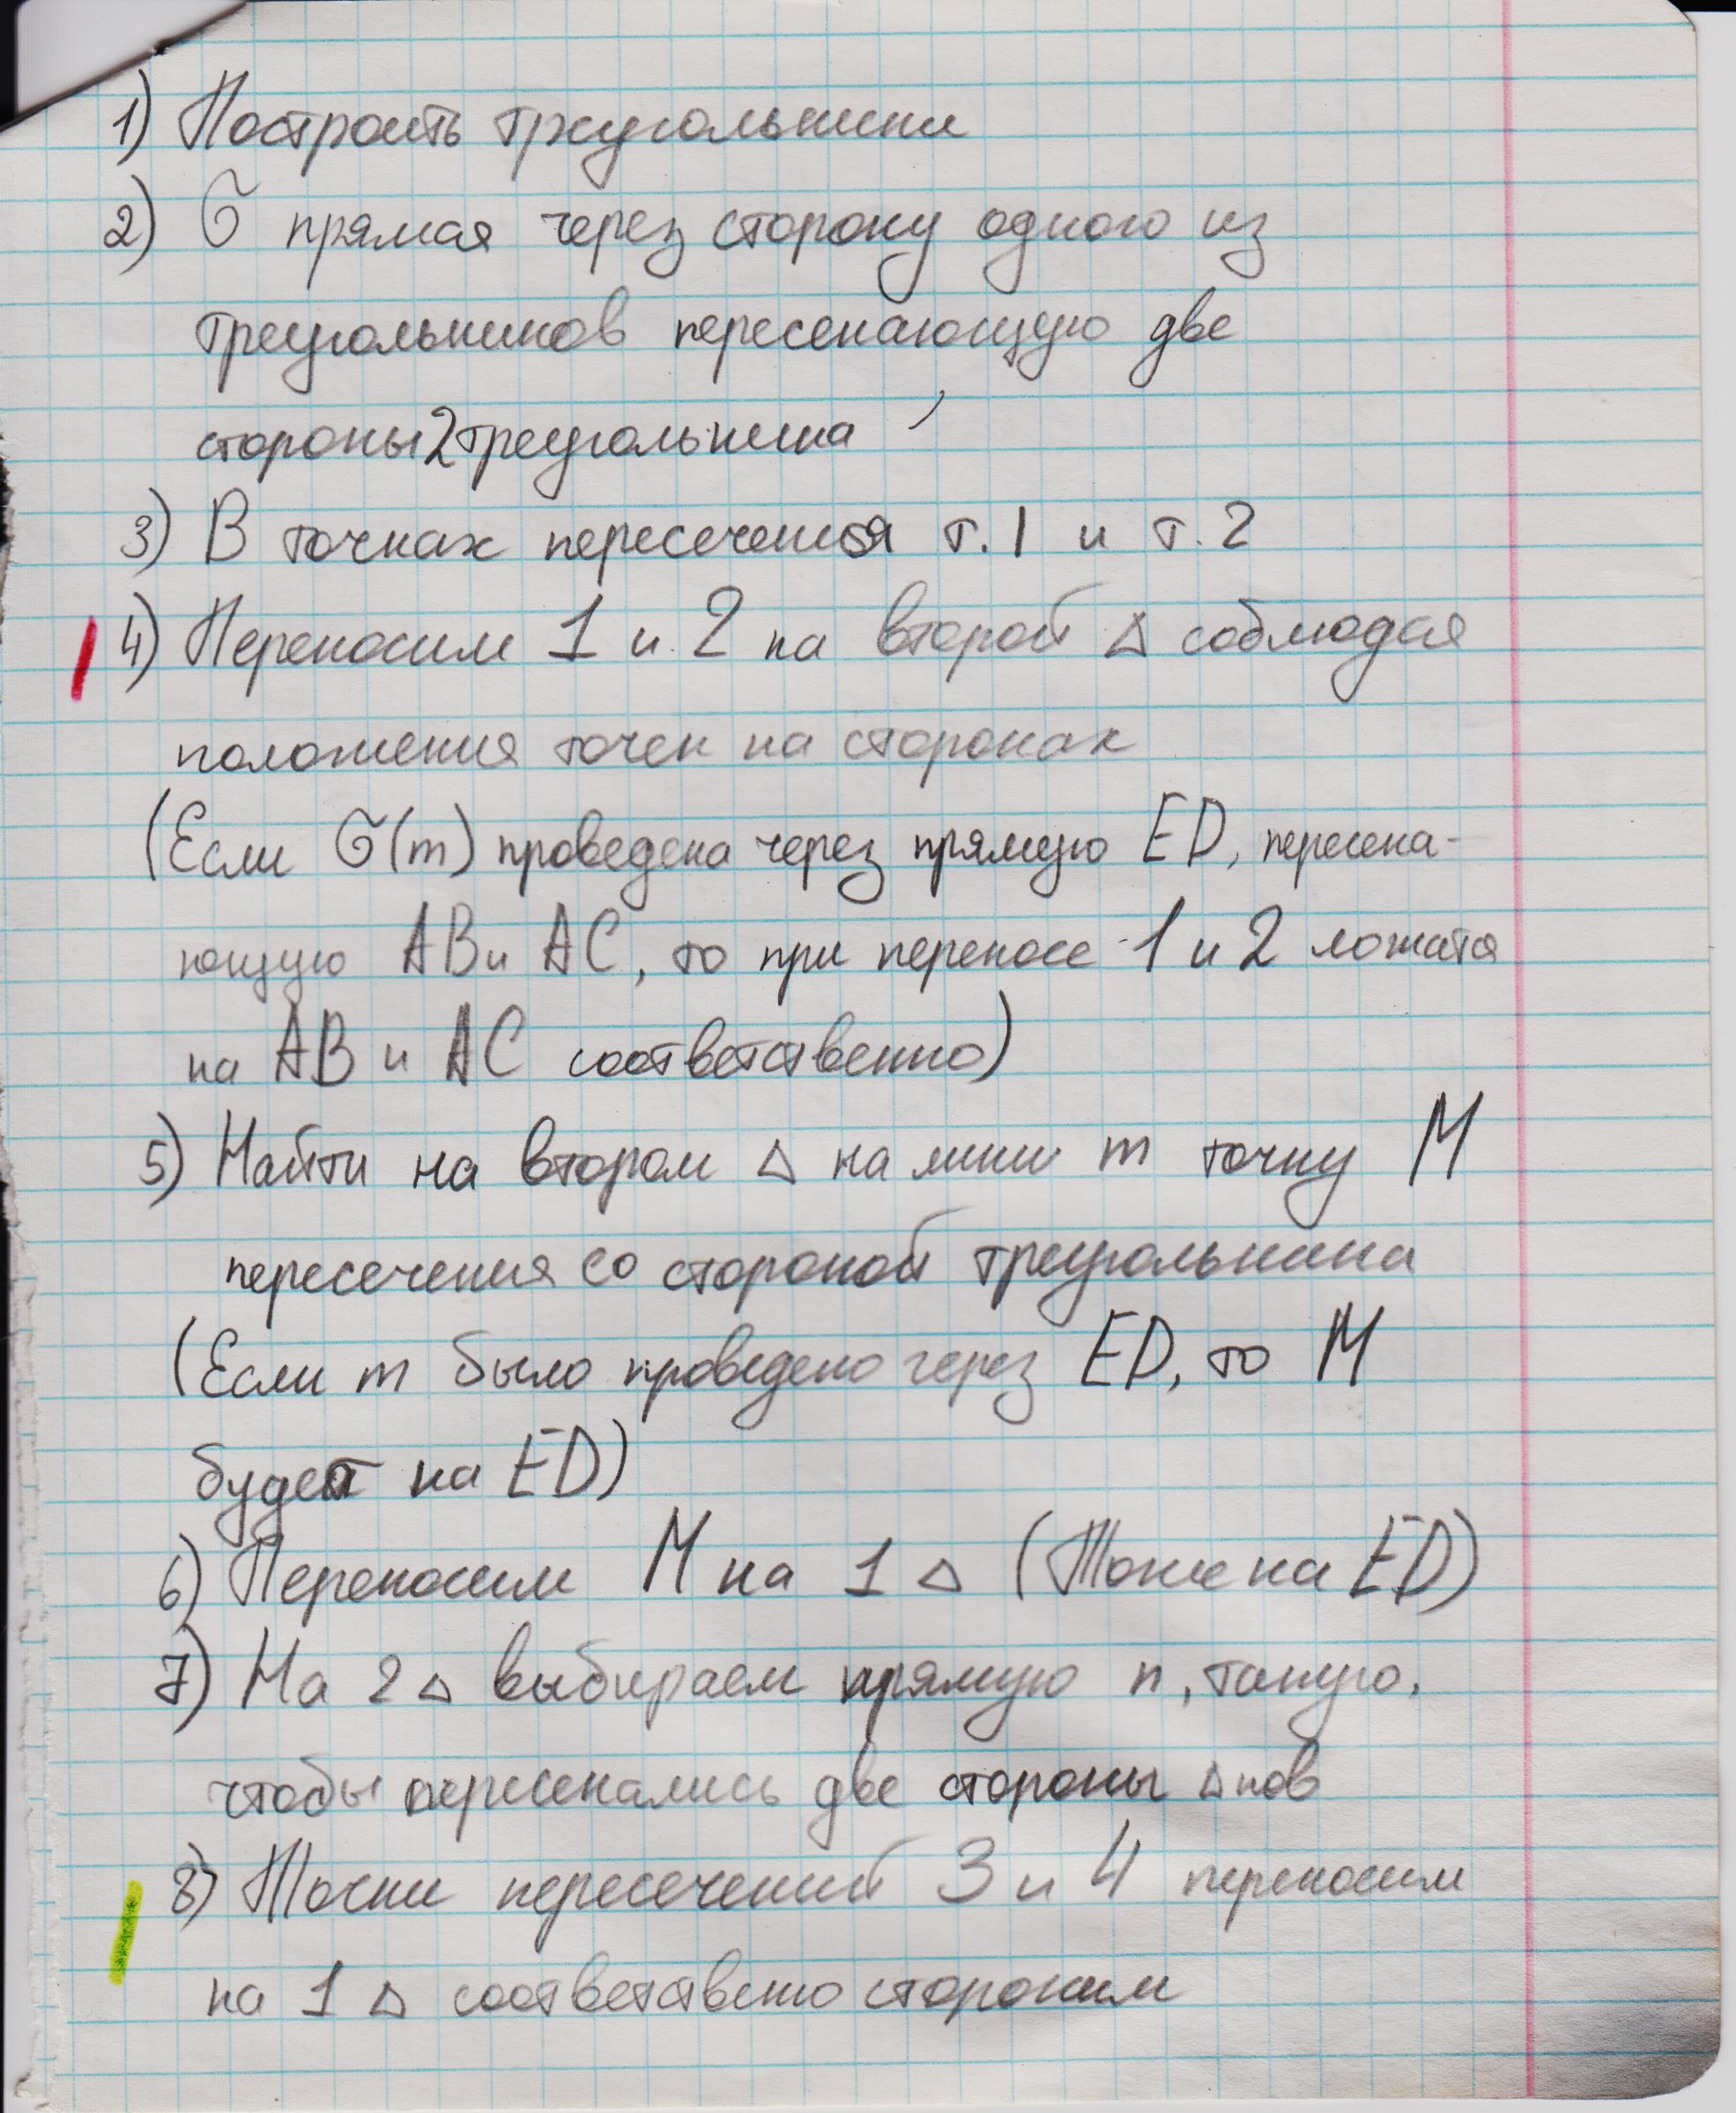 1) Построить треугольники
2) σ прямая через сторону одного из
треугольников пересекающую две
стороны 2 треугольника
3) В точках пересечения т. 1 и т. 2
4) Переносим 1 и 2 на второй △ соблюдая
положения точек на сторонах
(Если σ(m) проведена через прямую ED, пересека-
ющую AB и AC, то при переносе 1 и 2 ложатся
на AB и AC соответственно)
5) Найти на втором △ на линии m точку M
пересечения со стороной треугольника
(Если m было проведено через ED, то M
будет на ED)
6) Переносим M на 1 △ (Тоже на ED)
7) На 2 △ выбираем прямую n, такую,
чтобы пересекались две стороны △ков
8) Точки пересечений 3 и 4 переносим
на 1 △ соответствено сторонам